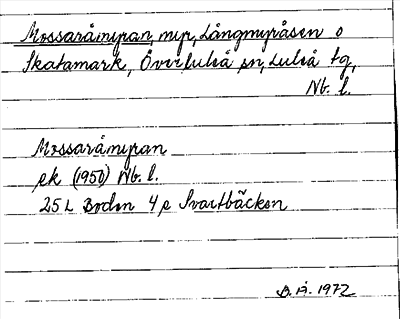 Mossaråmyran, myr, Långmyråsen o
Skatamark, Överluleå sn, Luleå tg,
Nb. l.
Mossaråmyran
ek (1950) Nb. l.
25 L Boden 4 e Svartbäcken
B.Å. 1972